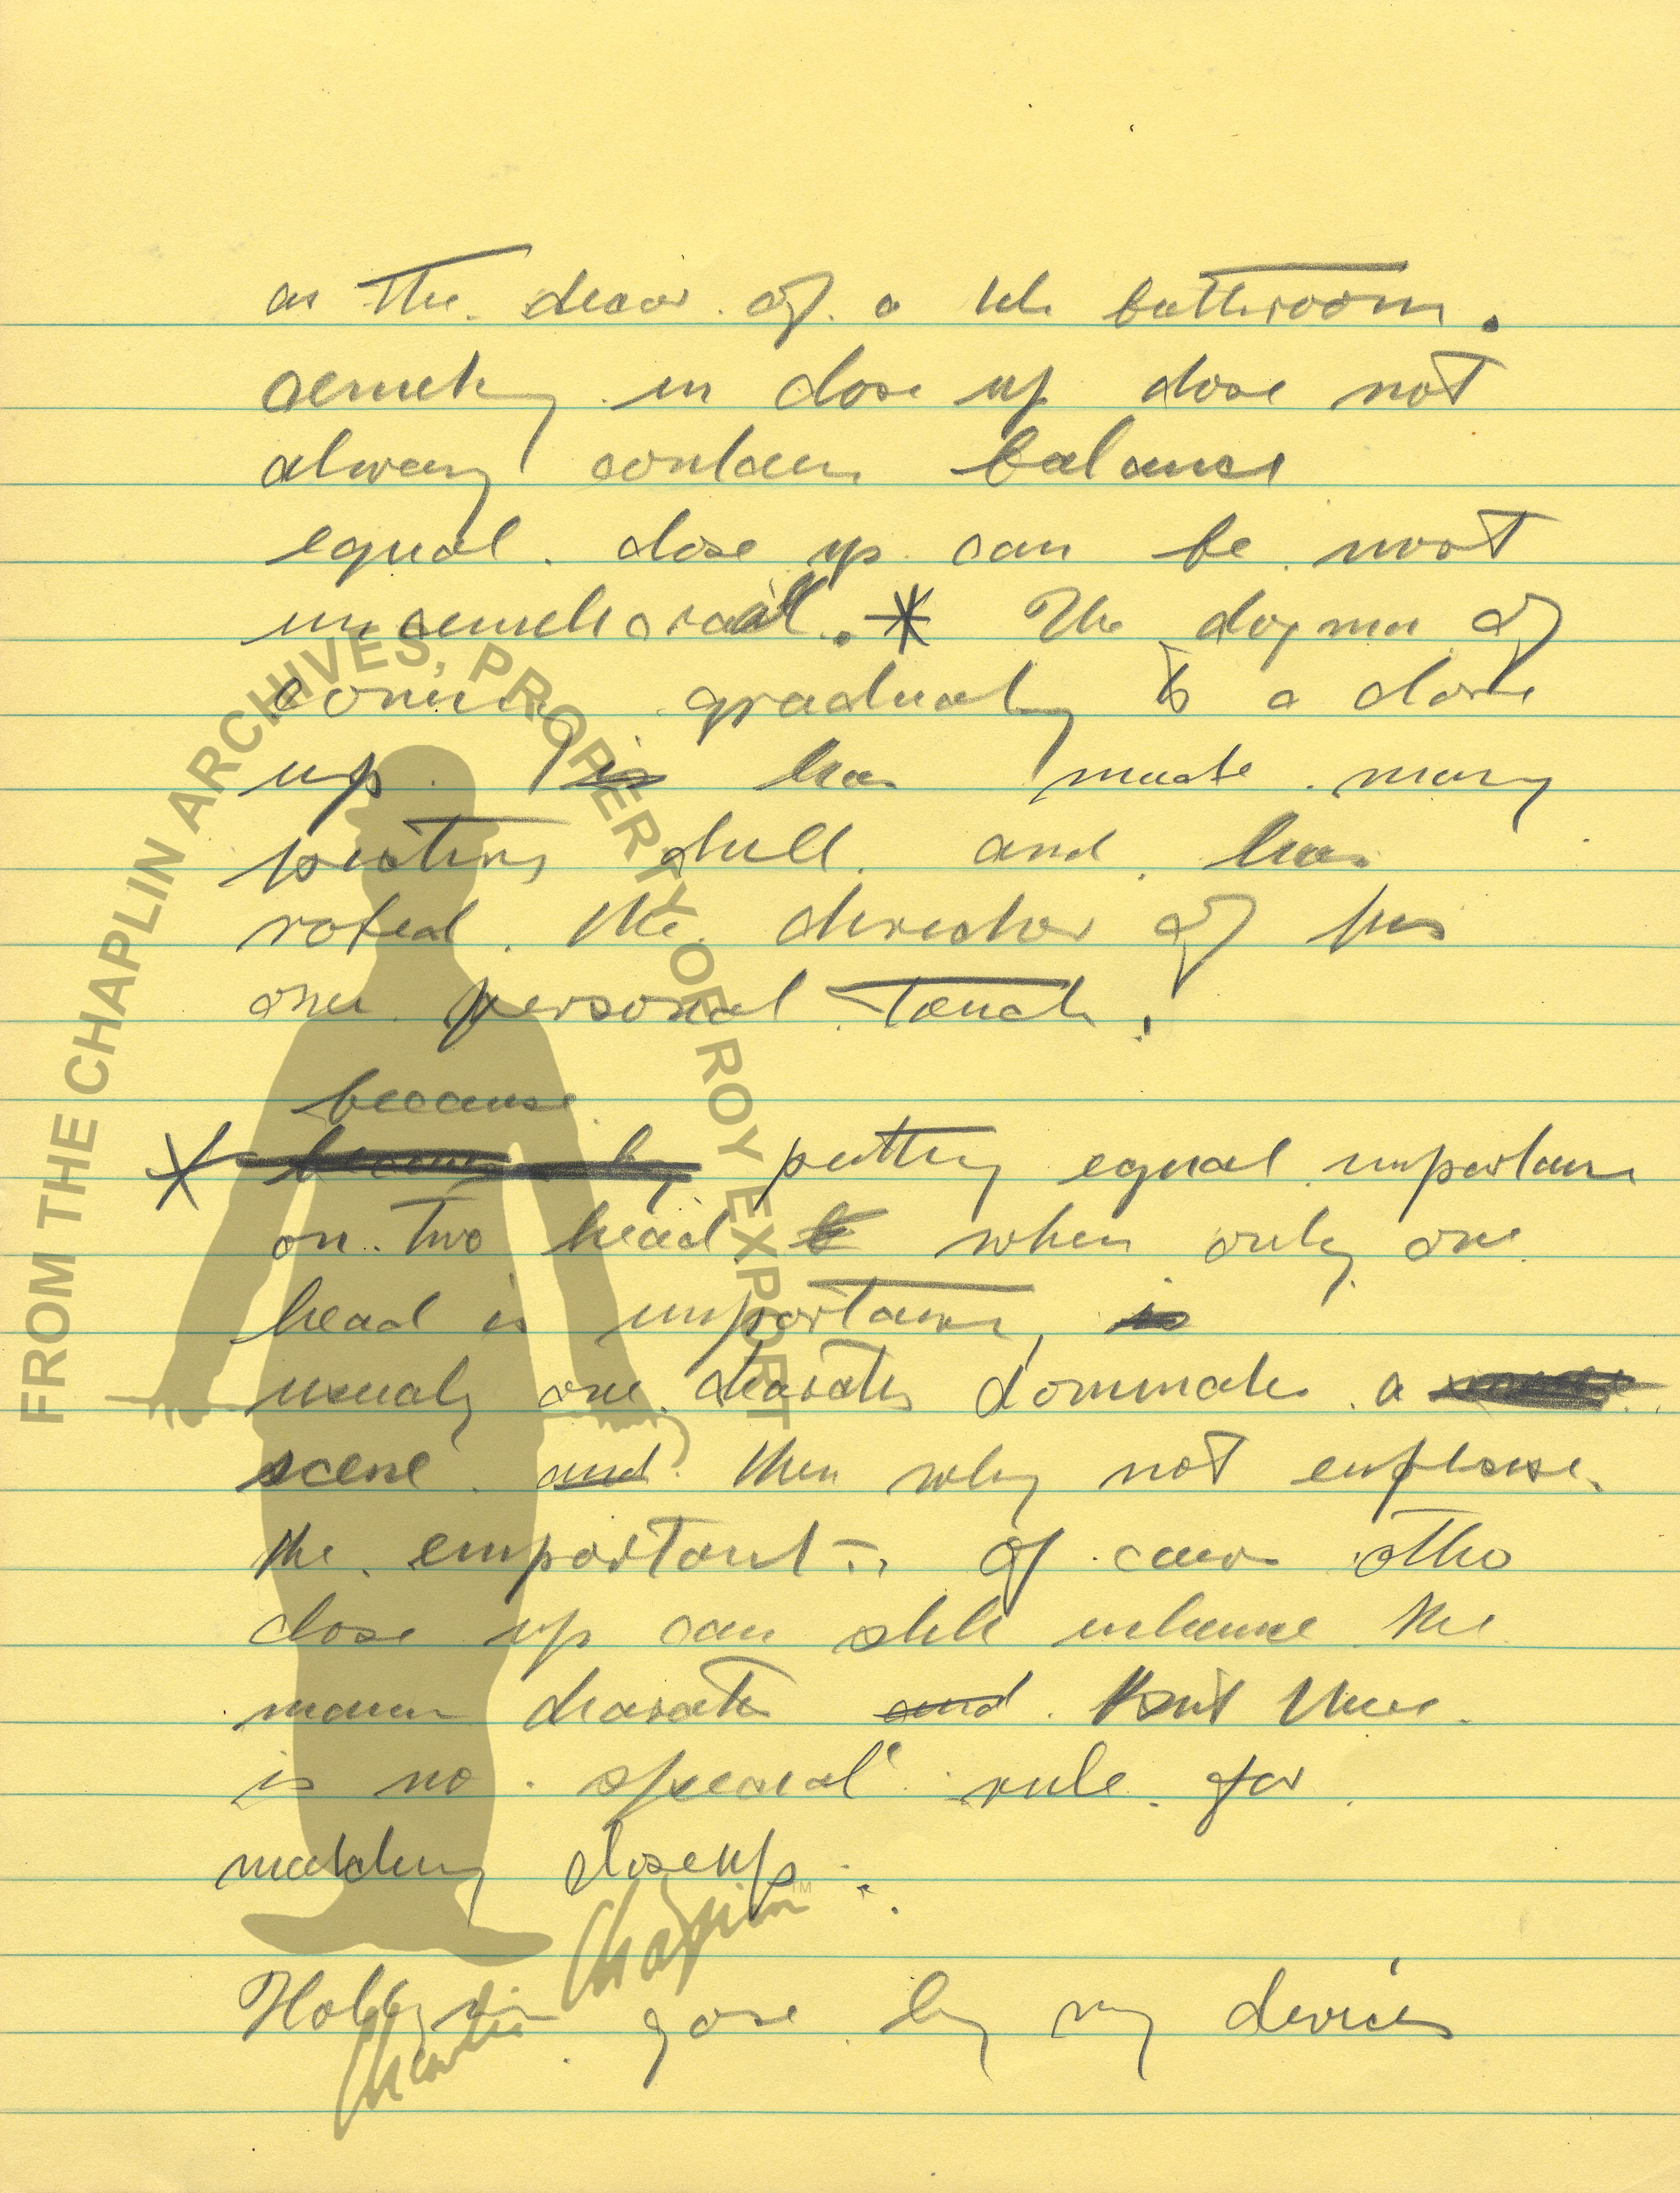 as the decor of a tile bathroom.
in close up dose not
alway contain balance
equal. close up can be most
unsemetrical. * The dogma of
coming gradualy to a close
up is has made many
pictures dull and has
robed the director of his
own personal touch.
because
* putting equal importanc
on two head when only one
head is important, is
usualy one charater dominate a
scene and then why not
the emportant -. Of cours
close up can still enhance the
main charater and But there
is no special rule for
matching closeups.
Hollywin gose by my
FROM THE CHAPLIN ARCHIVES, PROPERTY OF ROY EXPORT
Charlie Chaplin™